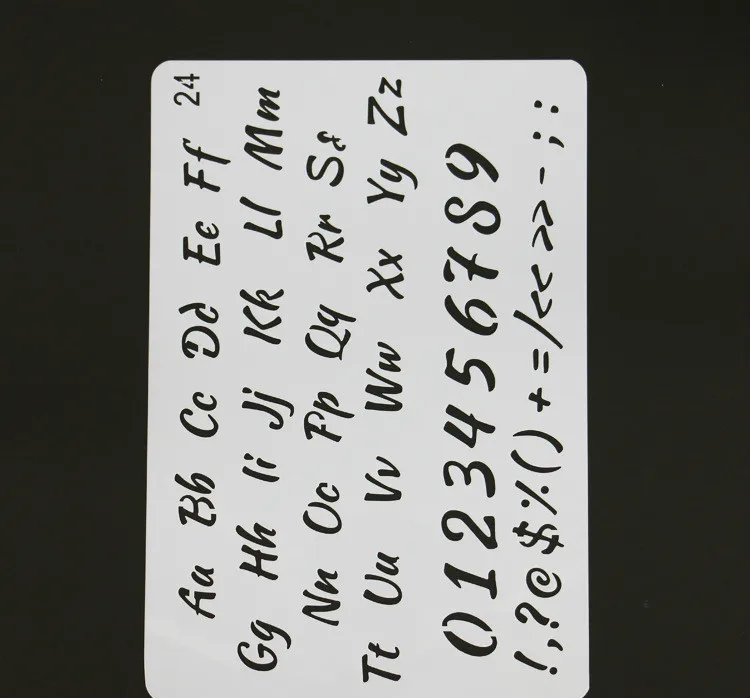 Aa Bb Cc Dd Ee Ff 24
Gg Hh Ii Jj Kk Ll Mm
Nn Oo Pp Qq Rr Ss
Tt Uu Vv Ww Xx Yy Zz
0123456789
!,?@$%()+=/<<>>-;: